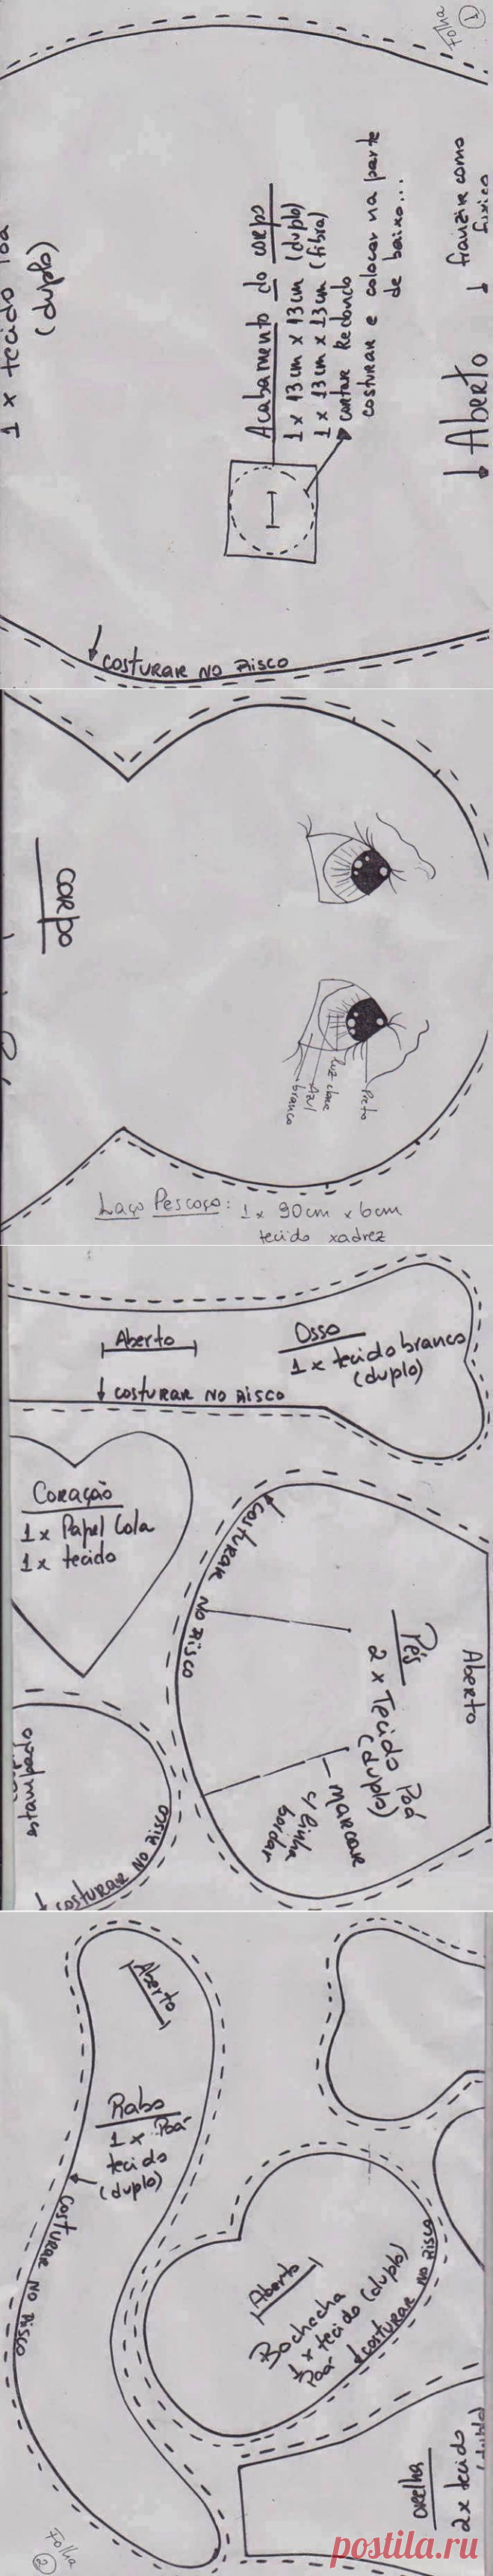 Folha
1
1 x tecido
(duplo)
Acabamento do corpo
1 x 13cm x 13cm (duplo)
1 x 13cm x 13cm (fibra)
cortar Redondo
costurar e colocar na parte
de baixo...
Aberto
franzir como
fuxico
costurar no risco
corpo
Preto
luz clara
Azul
branco
Laço Pescoço: 1x 90cm x 6cm
tecido xadrez
Aberto
Osso
1 x tecido branco
(duplo)
costurar no risco
Coração
1 x Papel Cola
1 x tecido
costurar no risco
Pés
2 x Tecido Poá
(duplo)
Aberto
marcar
c/ linha
bordar
estampado
costurar no risco
Aberto
Rabo
1 x Poá
tecido
(duplo)
costurar no risco
Aberto
Bochecha
1 x tecido (duplo)
Poá
costurar no risco
orelha
2x tecido
Folha
2
postila.ru